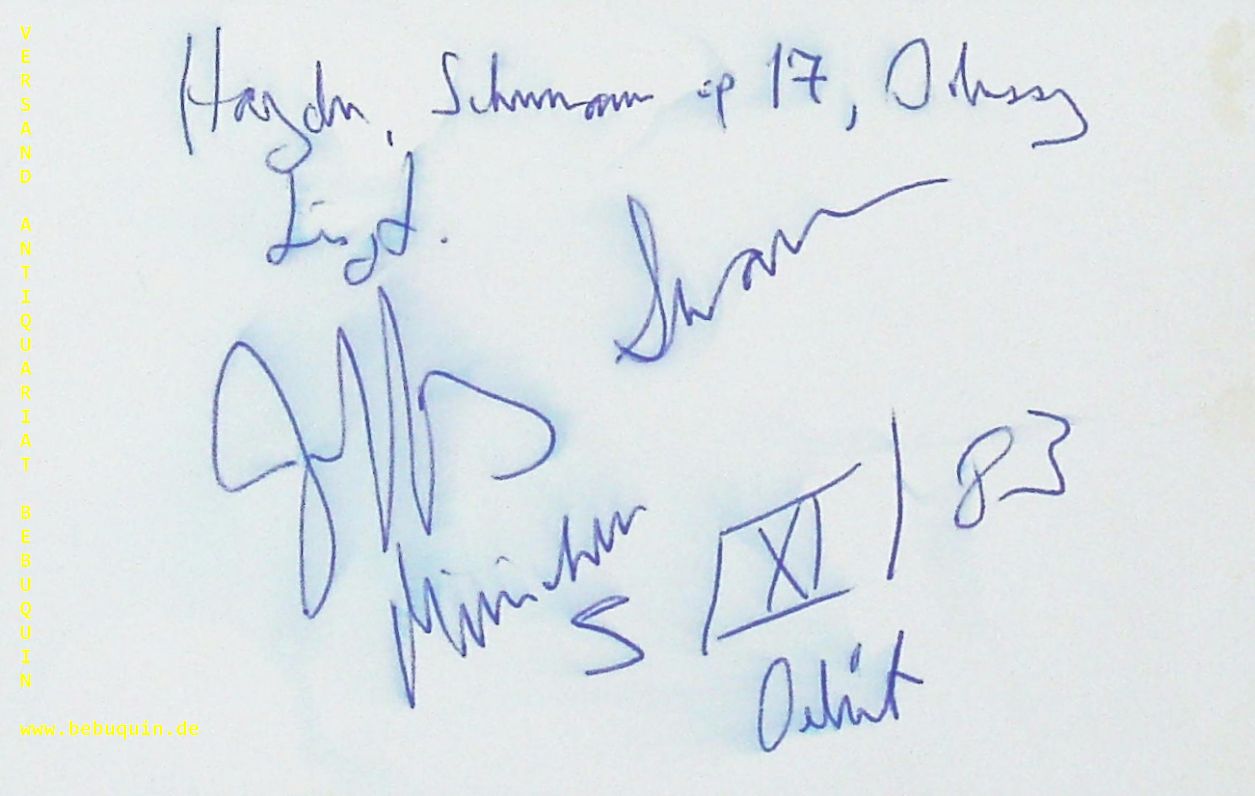 Haydn, Schumann op 17, Debussy
Liszt.
München
5 / XI / 83
Debüt
VERSAND ANTIQUARIAT BEBUQUIN
www.bebuquin.de